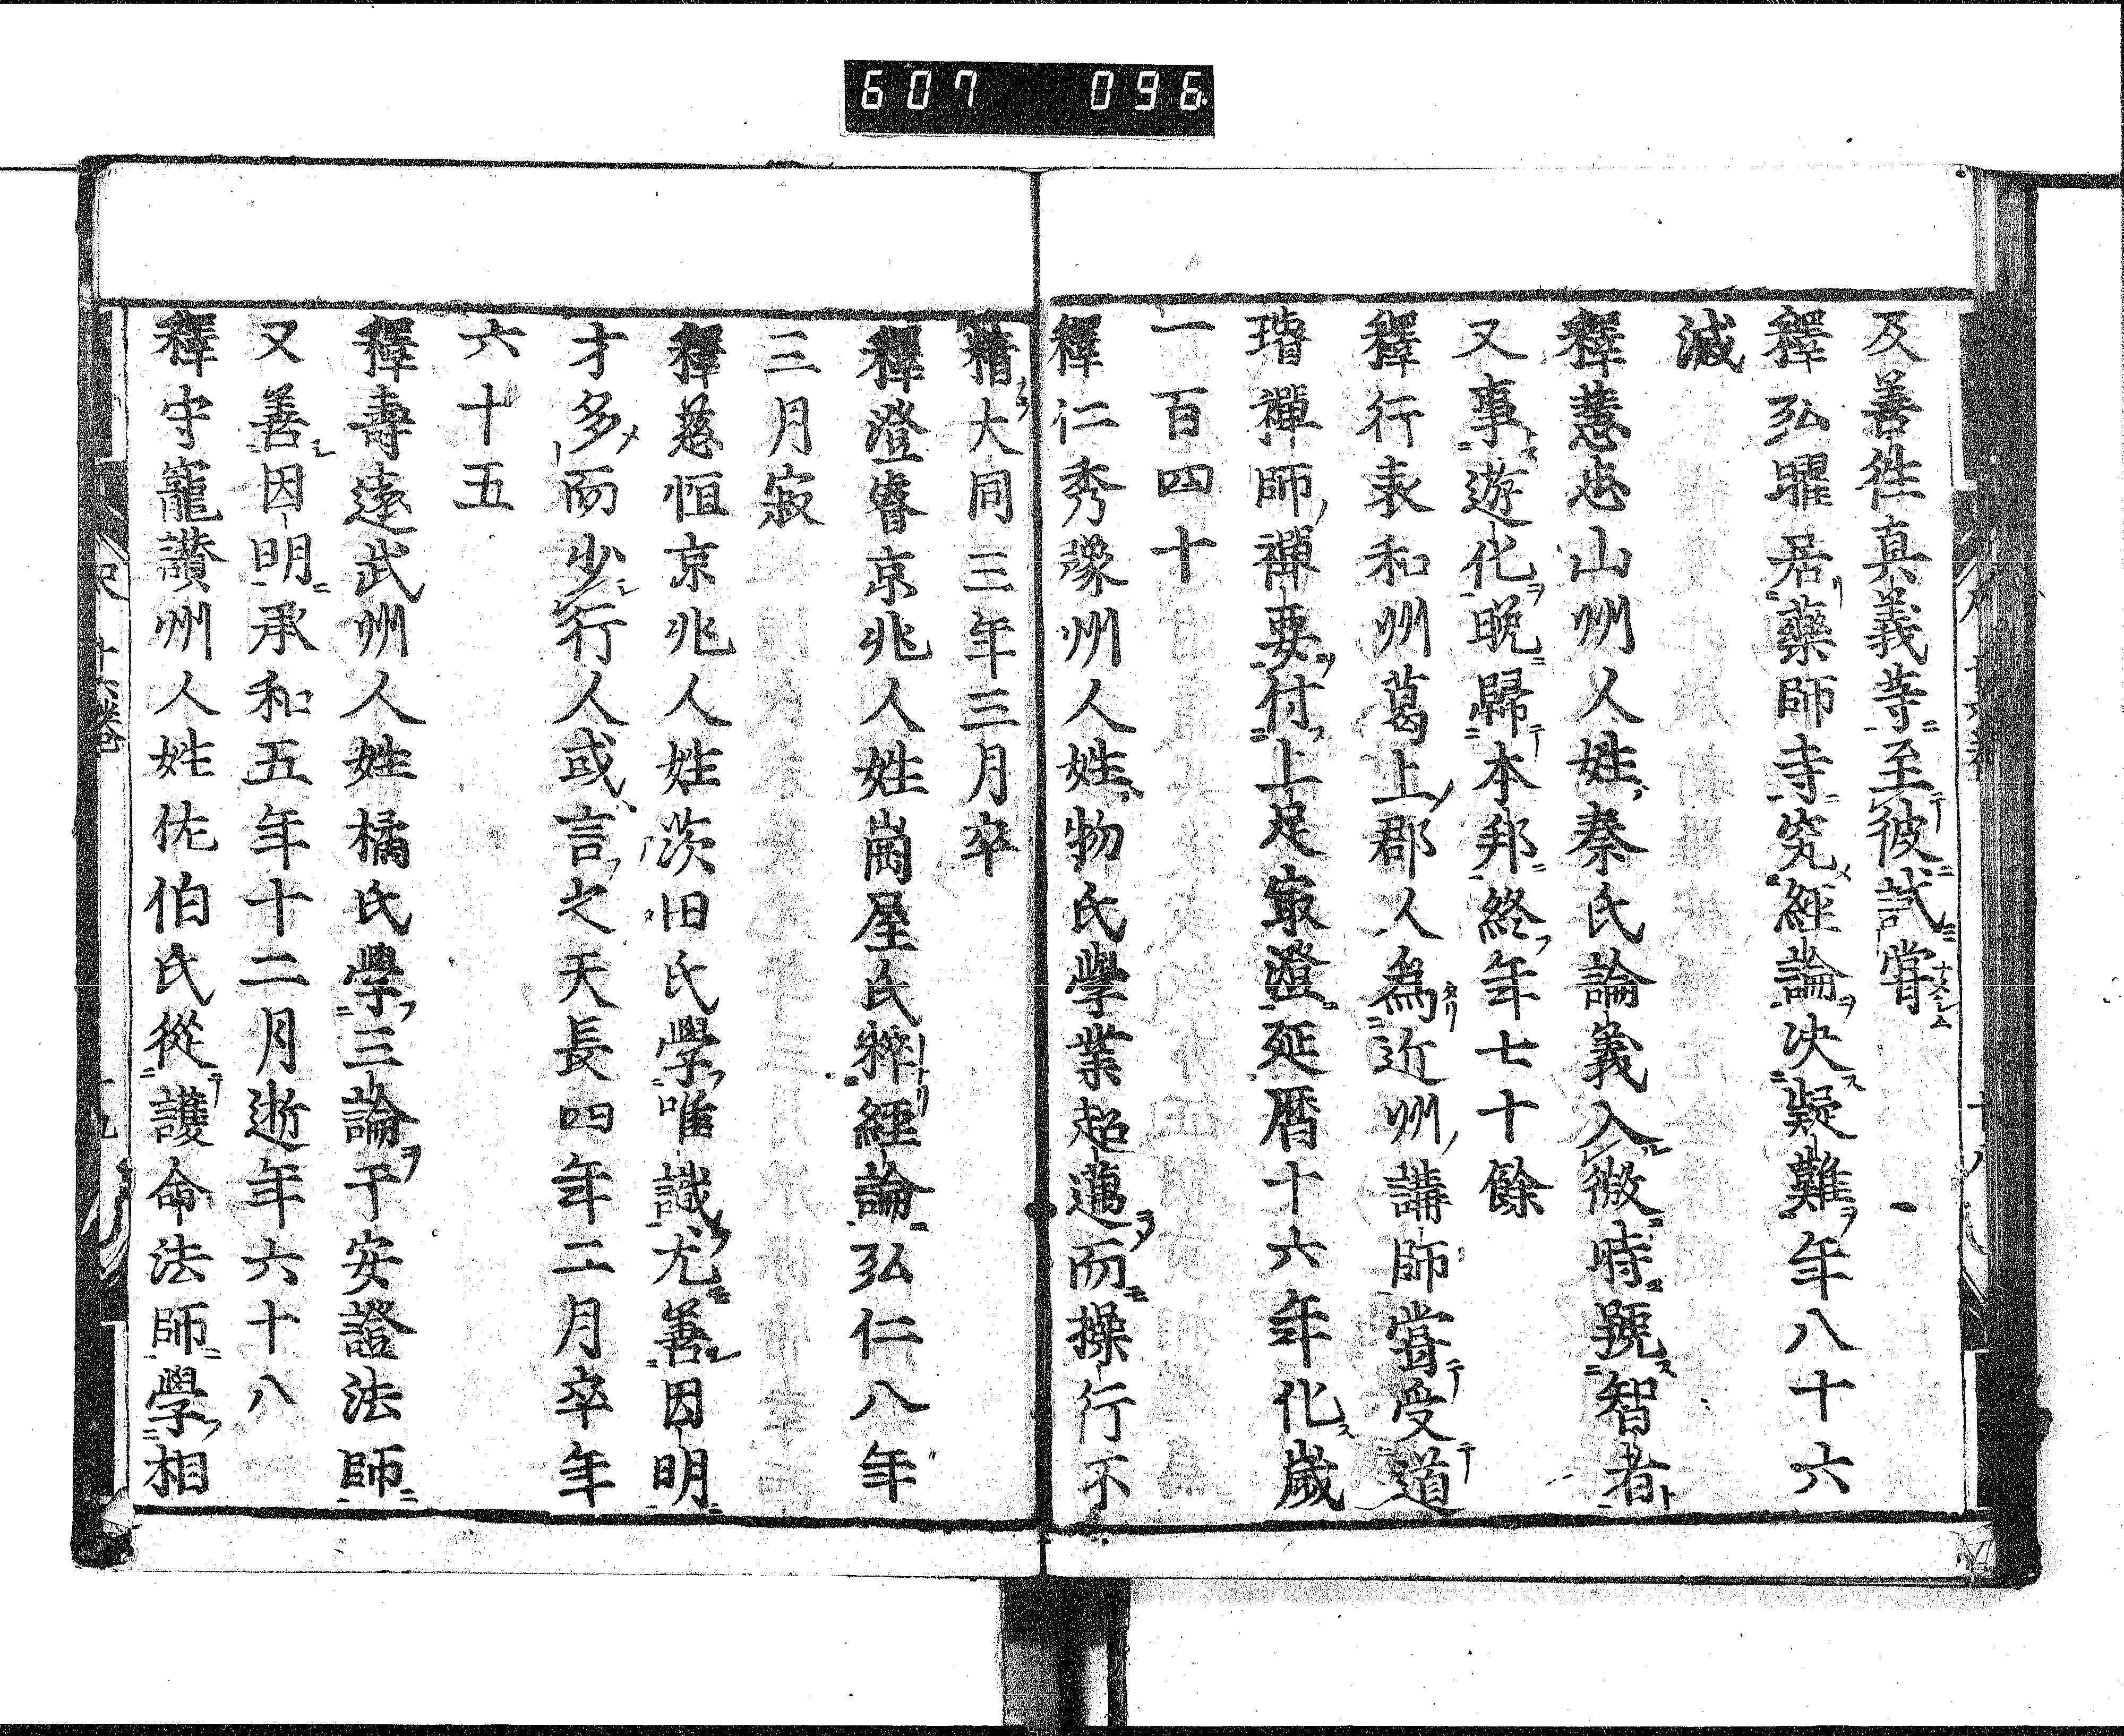 607 096
及善往真義等至彼試嘗
釋弘曜居藥師寺究經論决疑難年八十六
滅
釋慧忠山州人姓秦氏論義入微時號智者
又事遊化晚歸本邦終年七十餘
釋行表和州葛上郡人為近州講師嘗受道
璿禪師禪要付上足㝡澄延曆十六年化歲
一百四十
釋仁秀豫州人姓物氏學業超邁而操行不
大同三年三月卒
釋澄睿京兆人姓崗屋氏粹經論弘仁八年
三月寂
釋慈恒京兆人姓茨田氏學唯識尤善因明
才多而少行人或言之天長四年二月卒年
六十五
釋壽遠武州人姓橘氏學三論于安證法師
又善因明承和五年十二月逝年六十八
釋守寵讚州人姓佐伯氏從護命法師學相